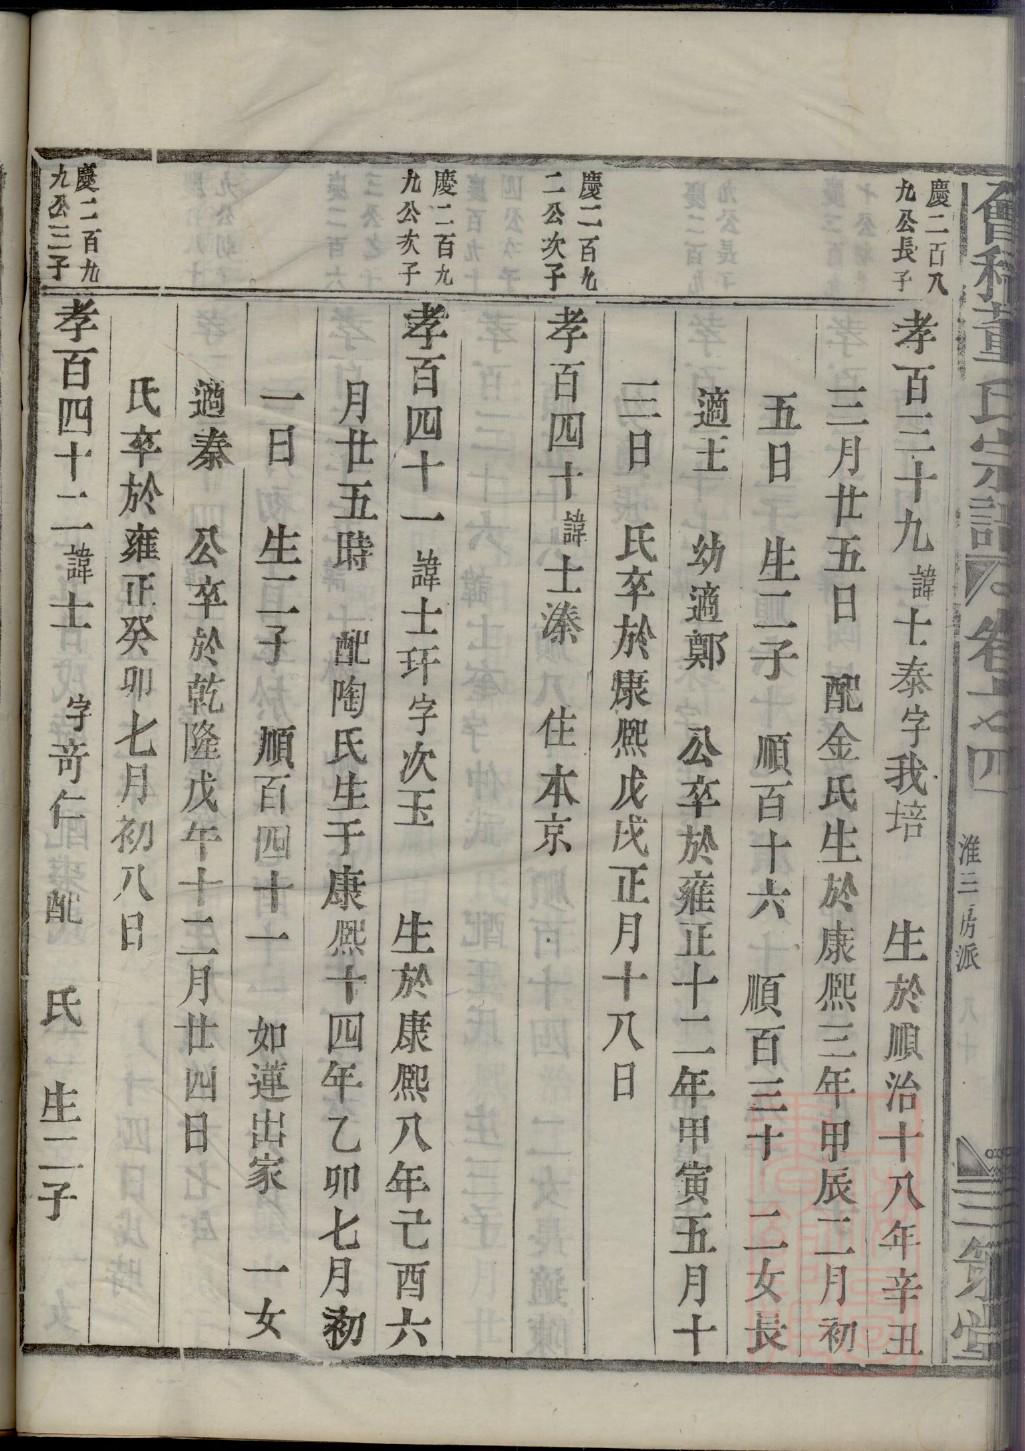 會稽董氏宗譜 卷之四 淮三房派 三策堂
慶二百八
九公長子
孝百三十九諱士泰字我培 生於順治十八年辛丑
三月廿五日 配金氏生於康熙三年甲辰二月初
五日 生二子 順百十六 順百三十 二女長
適王 幼適鄭 公卒於雍正十二年甲寅五月十
三日 氏卒於康熙戊戌正月十八日
慶二百九
二公次子
孝百四十諱士溱 住本京
慶二百九
九公次子
孝百四十一諱士玕字次玉 生於康熙八年己酉六
月廿五時 配陶氏生于康熙十四年乙卯七月初
一日 生二子 順百四十一 如蓮出家 一女
適秦 公卒於乾隆戊午十二月廿四日
氏卒於雍正癸卯七月初八日
慶二百九
九公三子
孝百四十二諱士 字奇仁 配 氏 生二子